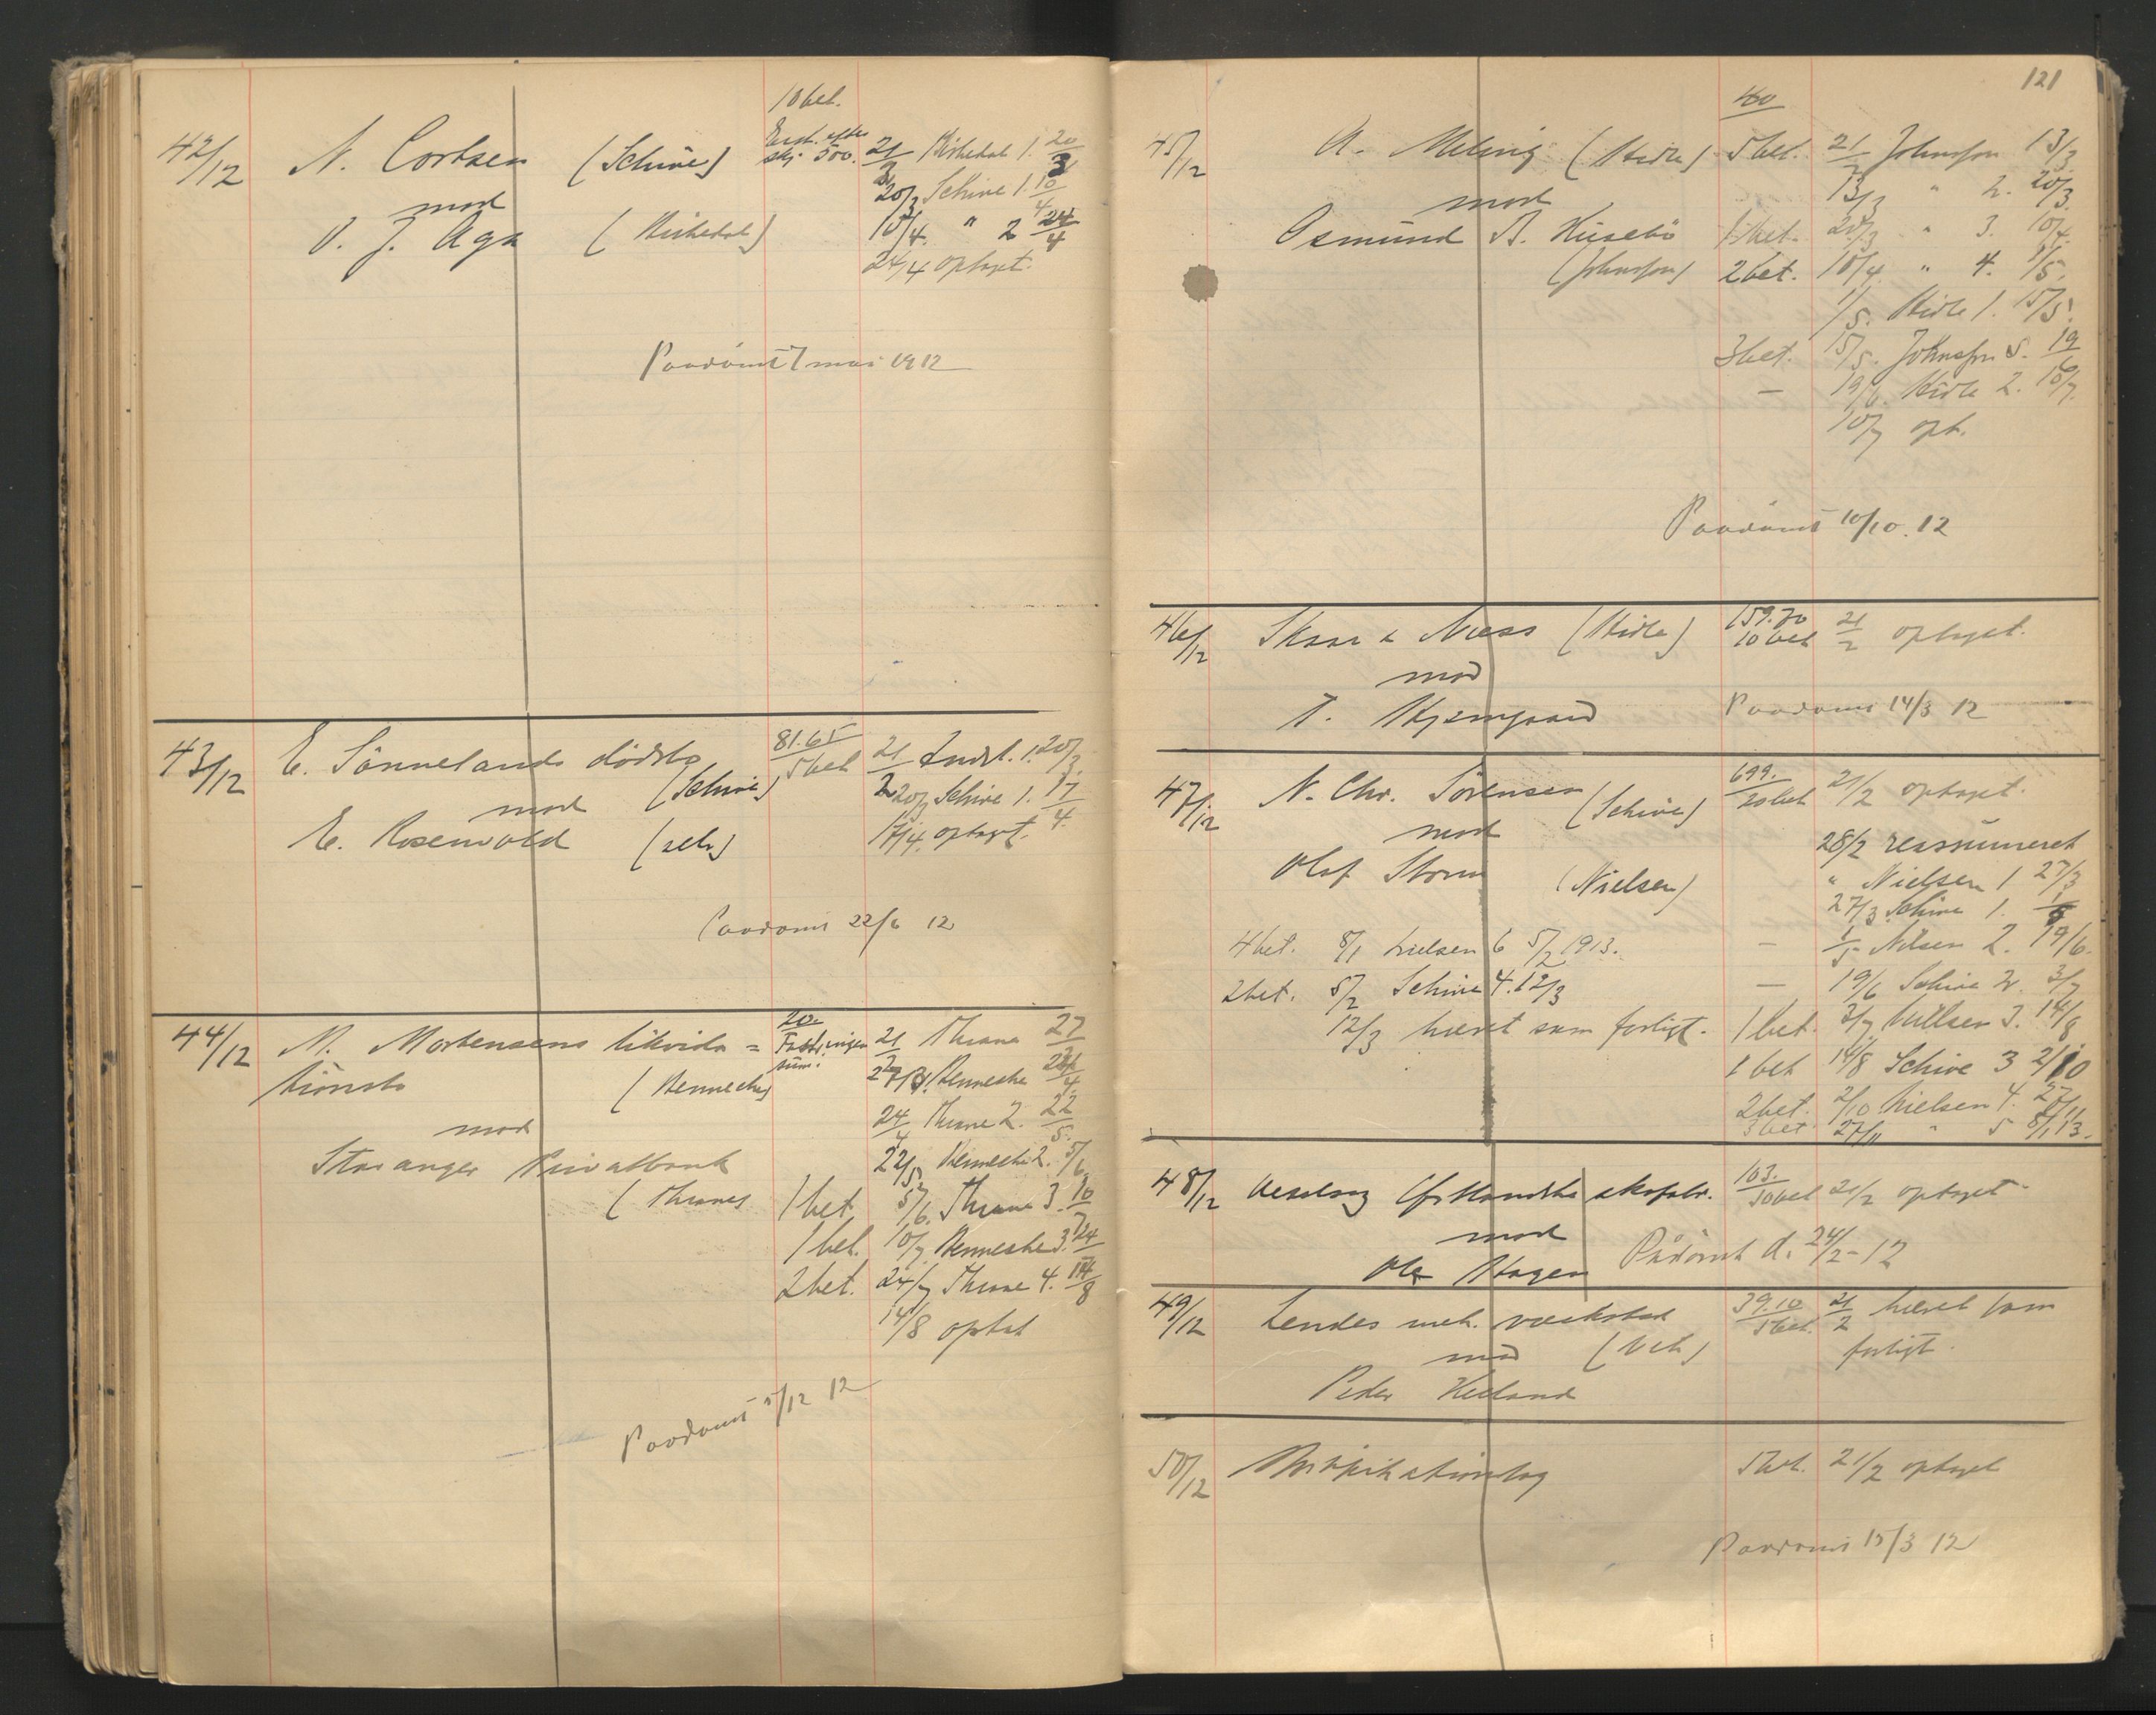 10 bet.
42/12 N. Cortsen (Schive) Erst. efter skj. 500. 21/2 Kirkedal 1. 20/3
mod 20/3 Schive 1. 10/4
O. J. Aga (Kirkedal) 10/4. " 2 24/4
24/4 optaget.
Paadømt 7 mai 1912
43/12 E. Sönnelands dödsbo 81.65 5 bet 21/2 Indst. 1. 20/3.
mod (Schive) 20/3 Schive 1. 17/4.
E. Rosenvold (selv) 17/4. optaget.
Paadømt 22/6 12
44/12 M. Mortensens likvida = 20. Fastr. ingen sum. 21/2 Thrane 27/3
tionsbo (Benneche) 27/3. Benneche 24/4.
mod 24/4 Thrane 2. 22/5.
Stavanger Privatbank 22/5. Benneche 2. 5/6
(Thrane) 1 bet. 5/6. Thrane 3. 10/7
1 bet. 10/7 Benneche 3. 24/7
2 bet. 24/7 Thrane 4. 14/8
14/8 optat
Paadømt 5/12 12
121
40
45/12 A. Meling (Hidle) 5 bet. 21/2 Johnsson 13/3.
mod 13/3 " 2. 20/3.
Osmund B. Husebö 1 bet. 20/3 " 3. 10/4.
(Johnsson) 2 bet. 10/4. " 4. 1/5.
1/5. Hidle 1. 15/5.
3 bet. 15/5. Johnsson 5. 19/6
— 19/6. Hidle 2. 10/7.
10/7 opt.
Paadømt 10/10. 12
46/12 Skaar & Næss (Hidle) 159.70 10 bet 21/2 optaget.
mod
T. Paadømt 14/3 12
47/12 N. Chr. Sörensen (Schive) 699. 20 bet 21/2 optaget.
mod 28/2 reassumeret
Olaf Storm (Nielsen) " Nielsen 1 27/3
27/3 Schive 1. 1/5
4 bet. 8/1 Nielsen 6 5/2 1913. — 1/5 Nilsen 2. 19/6.
2 bet. 5/2 Schive 4. 12/3 — 19/6 Schive 2. 3/7
12/3 hævet som forligt. 1 bet. 3/7. Nielsen 3. 14/8
1 bet 14/8 Schive 3 2/10
2 bet. 2/10 Nielsen 4. 27/11
3 bet 27/11 " 5 8/1 13.
48/12 skofabr. 103. 10 bet 21/2 optaget.
mod Pådömt d. 24/2-12
Ole Hagen
49/12 Lendes mek. værksted 39.10 5 bet. 21/2 hævet som
mod forligt.
Peder
50/12 5 bet. 21/2 optaget
Paadømt 15/3 12